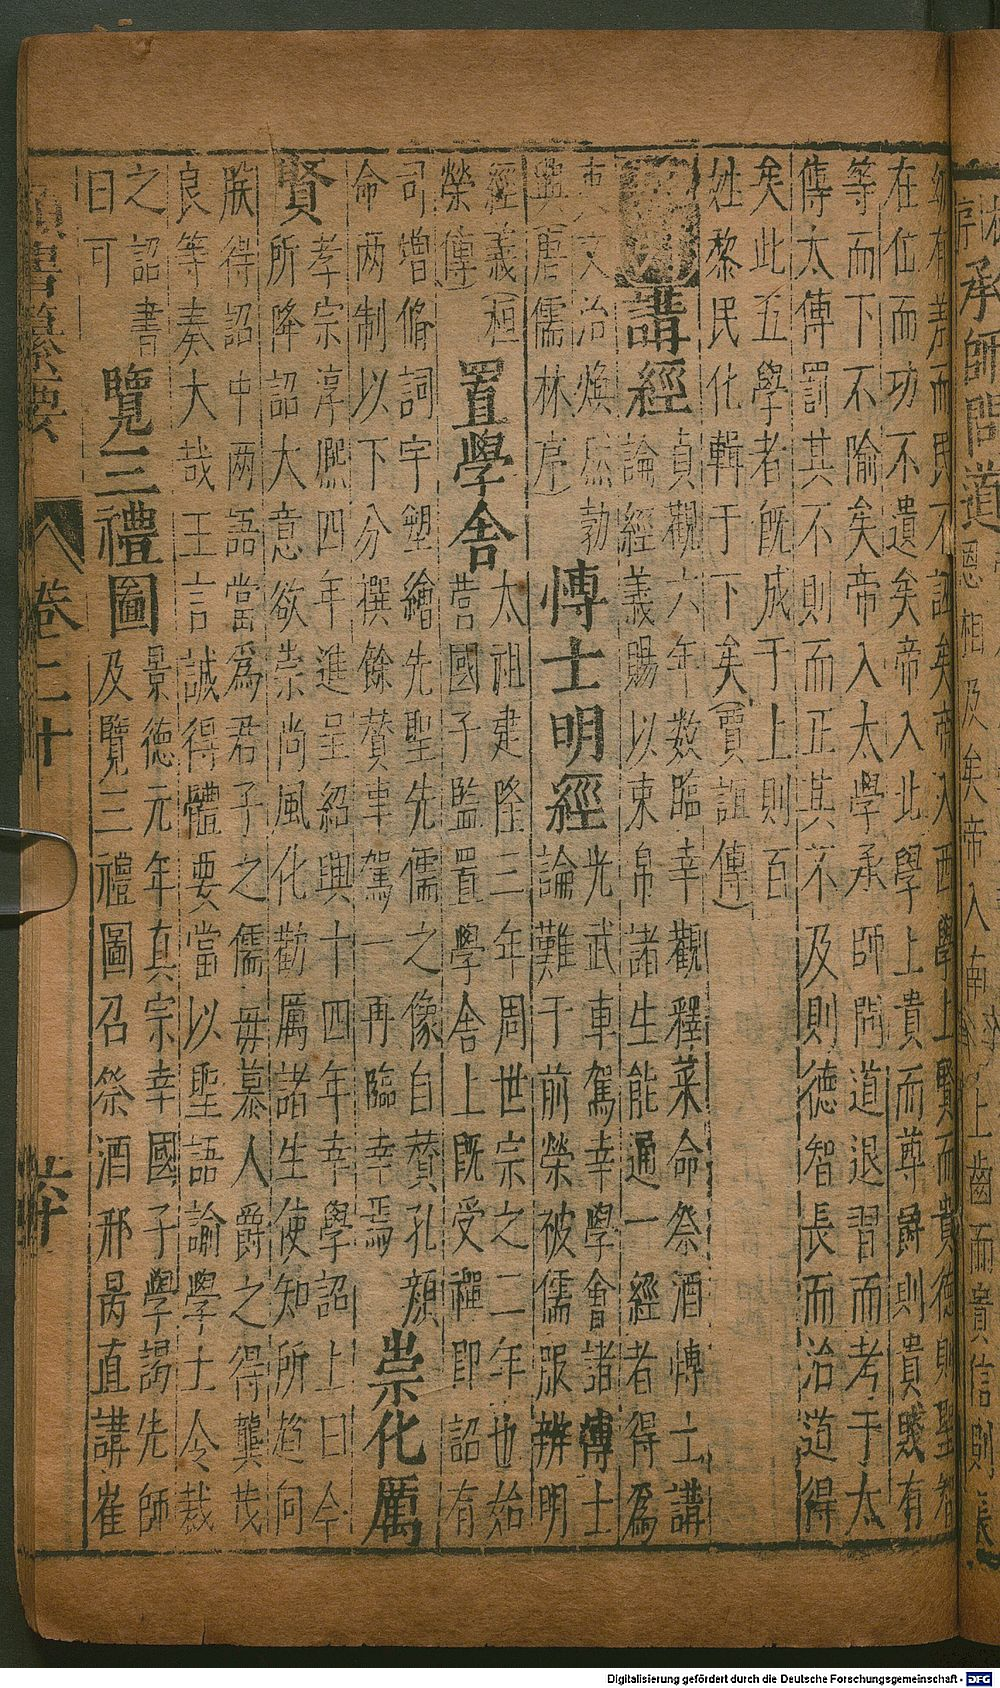 承師問道 恩相及矣帝入南學上齒而貴信則長
幼有差而民不誣矣帝入西學上賢而貴德則聖智
在位而功不遺矣帝入北學上貴而尊爵則貴賤有
等而下不隃矣帝入太學承師問道退習而考于太
傅太傅罰其不則而正其不及則德智長而治道得
矣此五學者旣成于上則百
姓黎民化輯于下矣(賈誼傳)
講經
貞觀六年數臨幸觀釋菜命祭酒博士講
論經義賜以束帛諸生能通一經者得爲
吏文治煥然勃
興(唐儒林序)
博士明經
光武車駕幸學會諸博士
論難于前榮被儒服辨明
經義(桓
榮傳)
置學舍
太祖建隆三年周世宗之二年也始
營國子監置學舍上旣受禪即詔有
司增脩祠宇塑繪先聖先儒之像自贊孔顔
命两制以下分撰餘贊車駕一再臨幸焉
崇化厲
賢
孝宗淳熈四年進呈紹興十四年幸學詔上曰今
所降詔大意欲崇尚風化勸厲諸生使知所趋向
朕得詔中两語當爲君子之儒毋慕人爵之得龔茂
良等奏大哉王言誠得體要當以聖語諭學士令裁
之詔書
覽三禮圖
景德元年真宗幸國子學謁先師
及覽三禮圖召祭酒邢昺直講崔
曰可
卷二十
Digitalisierung gefördert durch die Deutsche Forschungsgemeinschaft - DFG